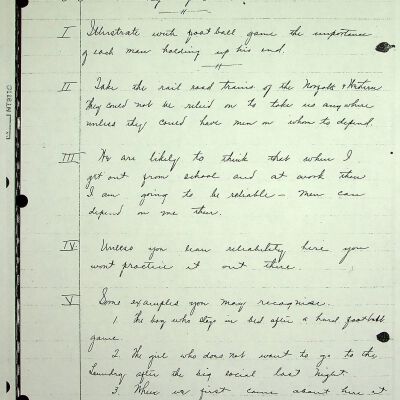 I Illustrate with foot ball game the importance
of each man holding up his end.
II Take the rail road trains of the Norfolk & Western
They could not be relied on to take us anywhere
unless they could have men on whom to depend.
III We are likely to think that when I
get out from school and at work then
I am going to be reliable — men can
depend on me then.
IV Unless you learn reliability here you
wont practice it out there.
V Some examples you may recognise.
1. The boy who stays in bed after a hard football
game.
2. The girl who does not want to go to the
laundry after the big social last night
3. When we first came about here it